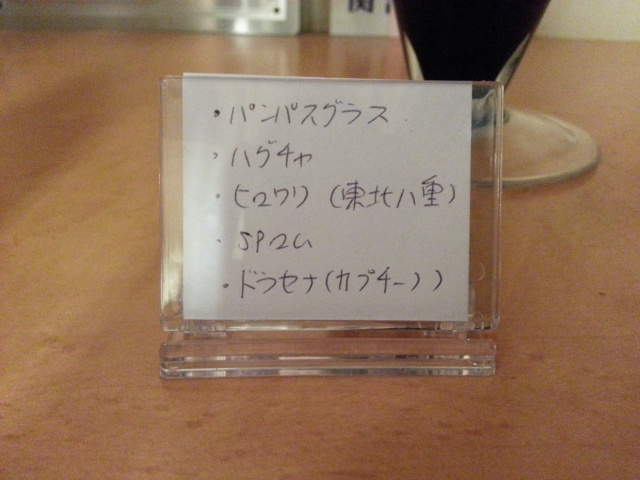 関
・パンパスグラス
・ハゲチャ
・ヒマワリ (東北八重)
・SPマム
・ドラセナ(カプチーノ)